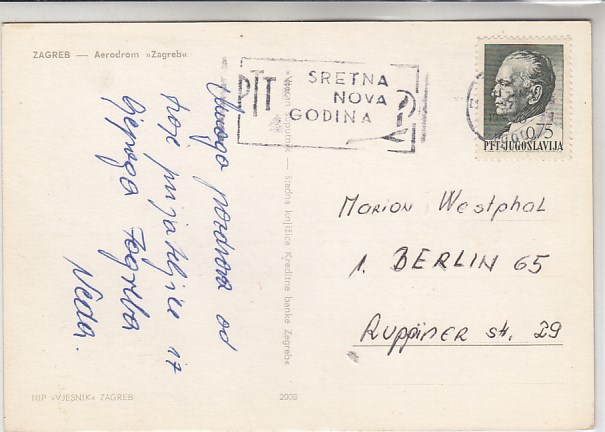 ZAGREB — Aerodrom »Zagreb«
PTT
SRETNA
NOVA
GODINA
0,75
PTT-JUGOSLAVIJA
Mnogo pozdrava od
tvoje prijateljice iz
lijepoga Zagreba
Neda.
štedna knjižica Kreditne banke Zagreb«
Marion Westphal
1. BERLIN 65
Ruppiner str. 29
NIP »VJESNIK« ZAGREB
2008